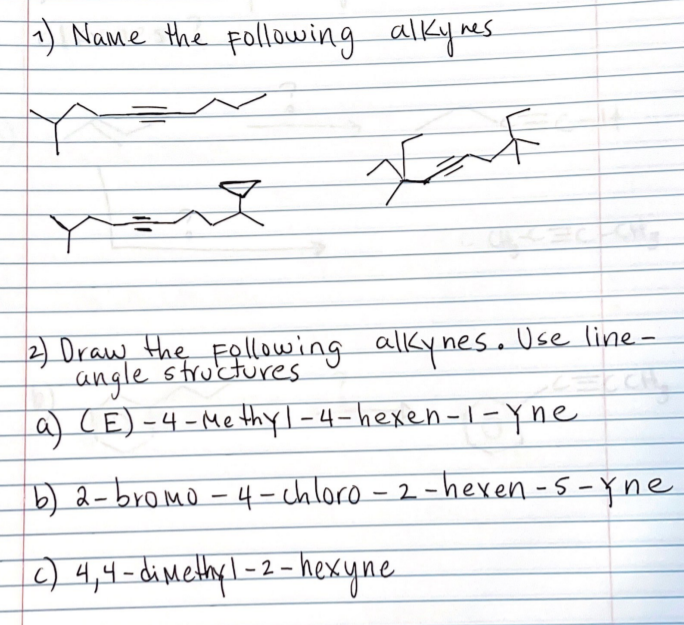 1) Name the following alkynes
2) Draw the following alkynes. Use line-
angle structures
a) (E)-4-Methyl-4-hexen-1-yne
b) 2-bromo-4-chloro-2-hexen-5-yne
c) 4,4-dimethyl-2-hexyne